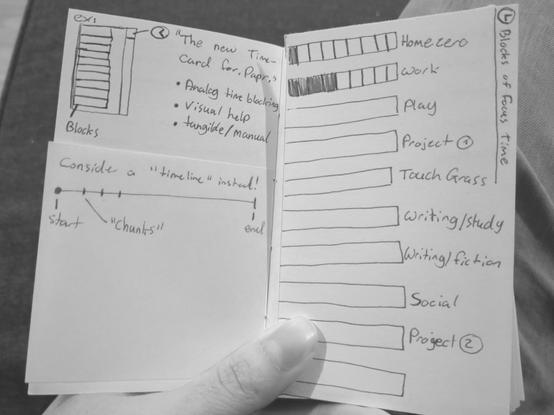 exs
3
"The new Time-
card for. Papr."
• Analog time blocking
• Visual help
• tangible/manual
Blocks
Conside a "timeline" instead!
start
"Chunks"
end
4 Blocks of Focus Time
Homezero
Work
Play
Project 1
Touch Grass
Writing/study
Writing/fiction
Social
Project 2